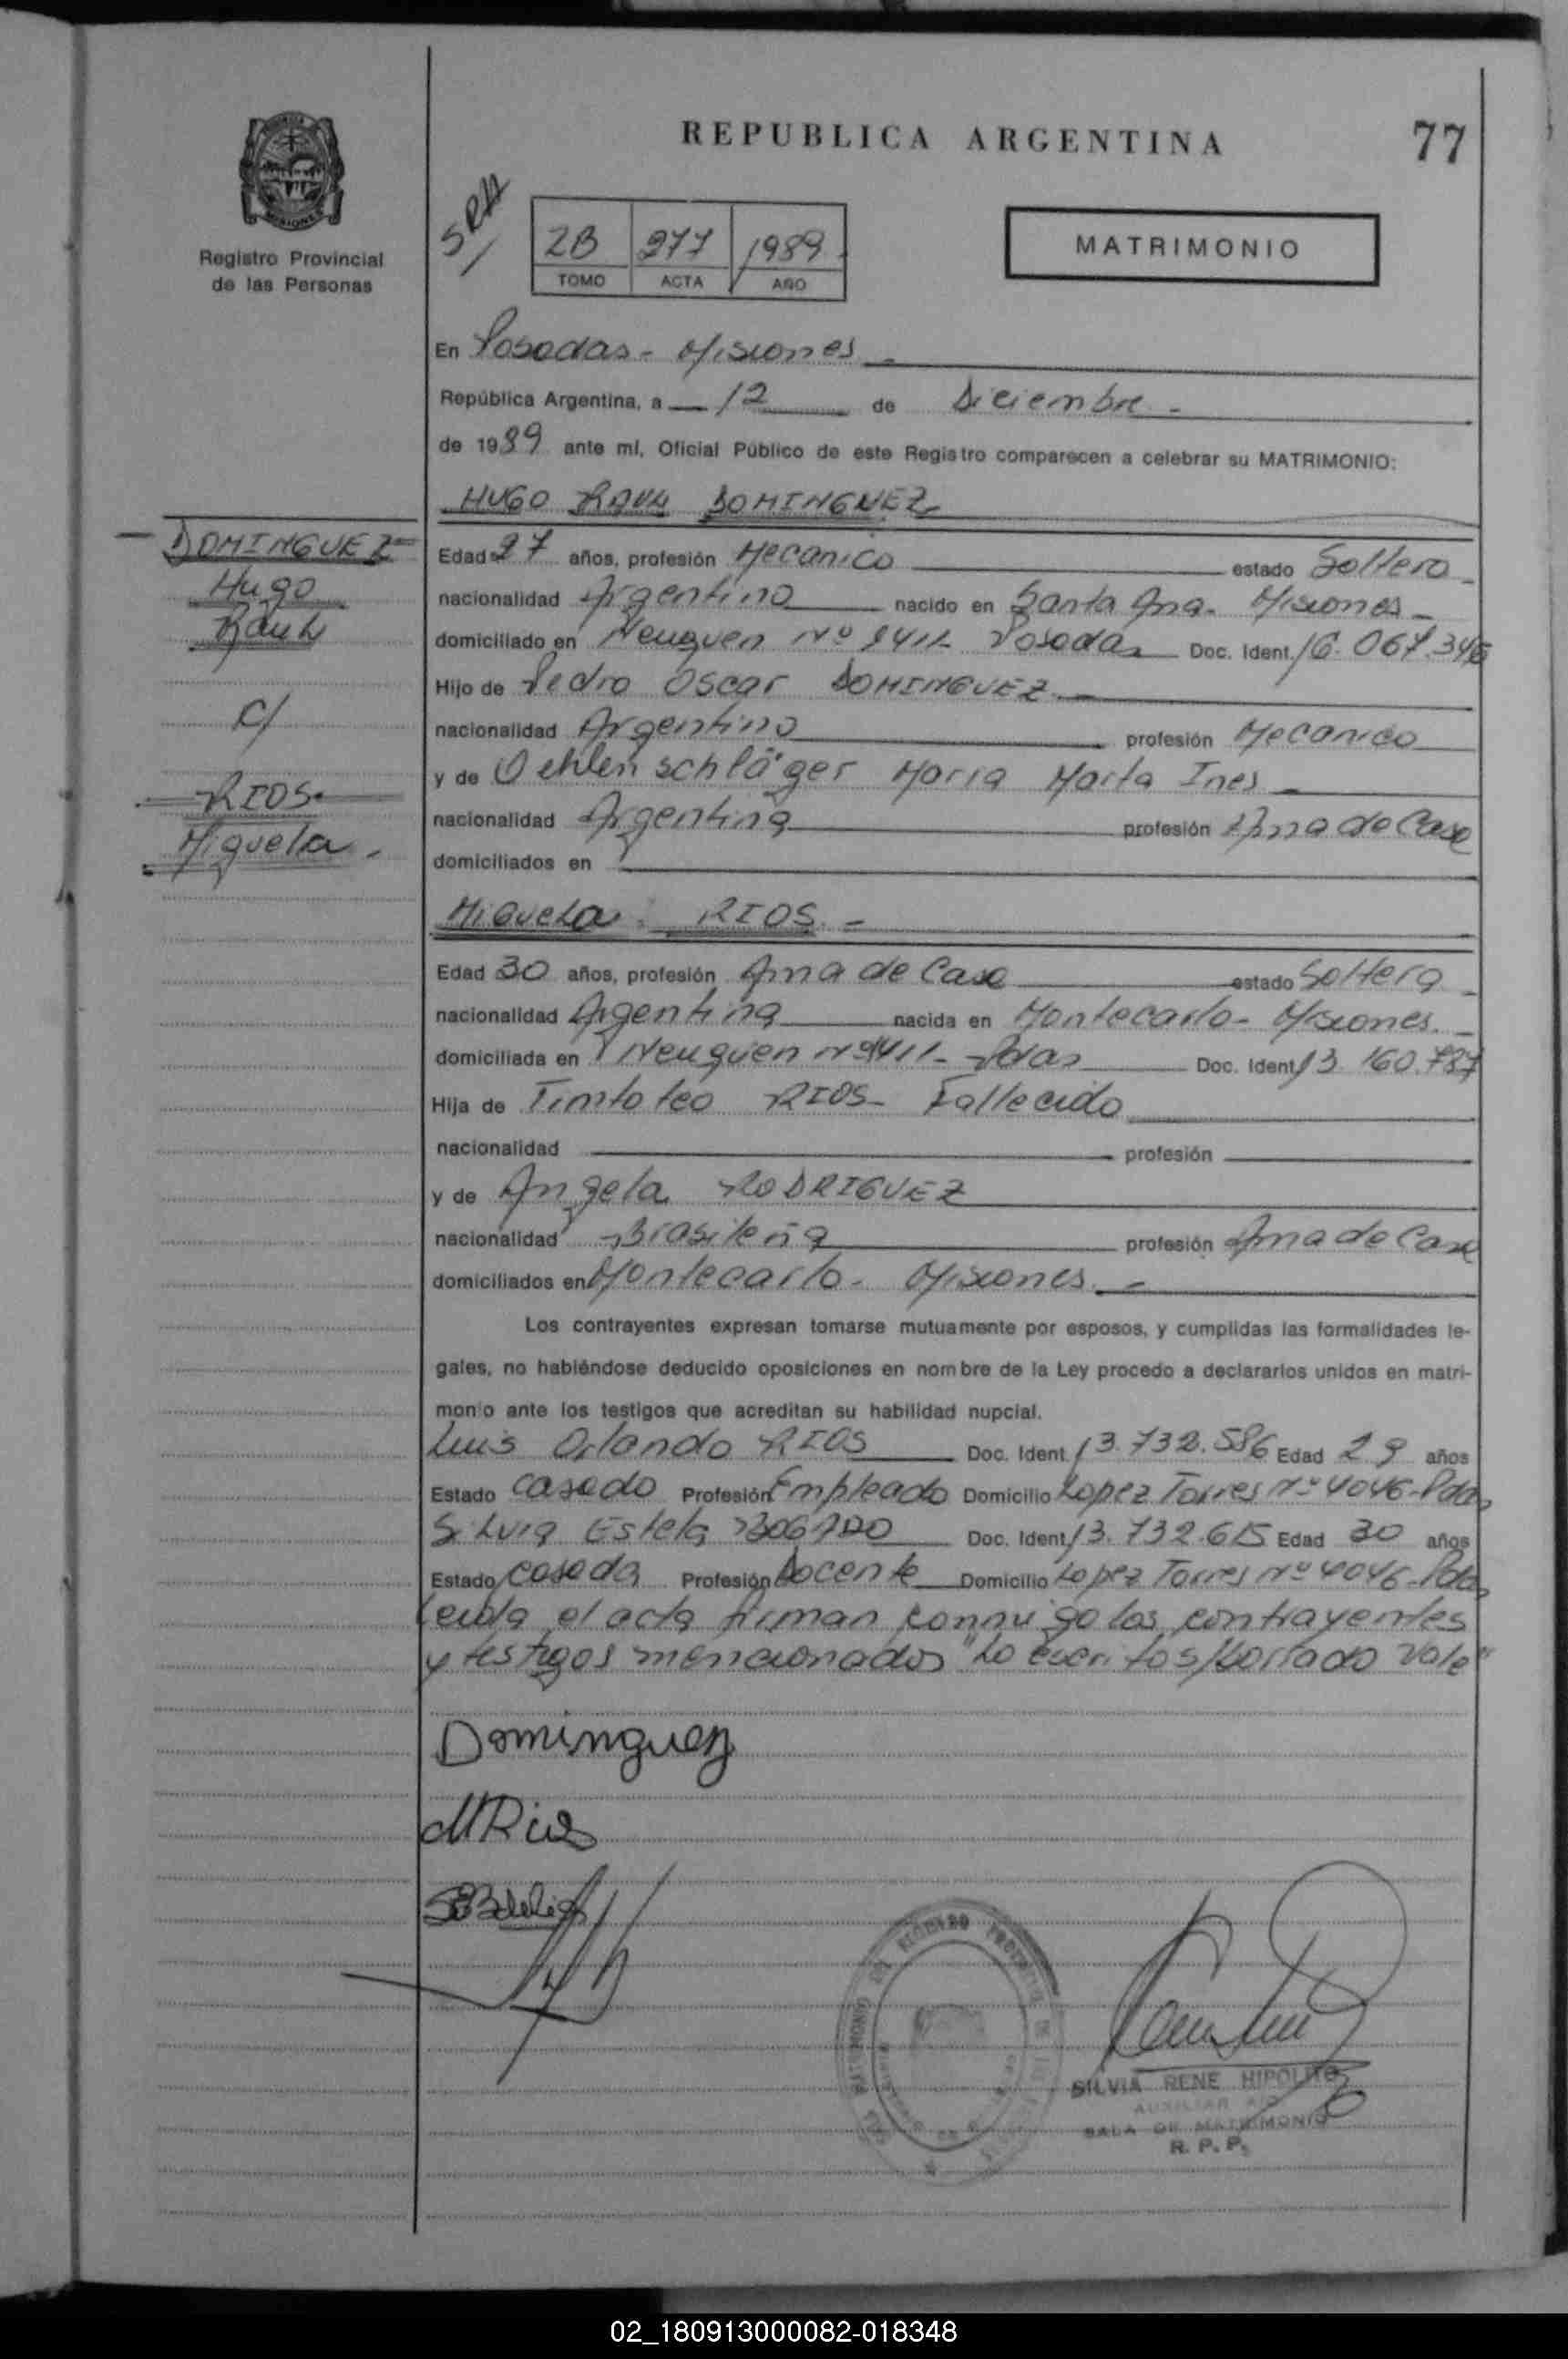 REPUBLICA ARGENTINA
77
Registro Provincial
de las Personas
SRH
2B 977 1989
TOMO ACTA AÑO
MATRIMONIO
En Posadas - Misiones
República Argentina, a 12 de Diciembre -
de 1989 ante mí, Oficial Público de este Registro comparecen a celebrar su MATRIMONIO:
HUGO RAUL DOMINGUEZ
DOMINGUEZ
Hugo
Raul
C/
RIOS
Miguela -
Edad 27 años, profesión Mecanico estado Soltero
nacionalidad Argentino nacido en Santa Ana - Misiones -
domiciliado en Neuquen Nº Posadas Doc. Ident. 16.067.346
Hijo de Pedro Oscar DOMINGUEZ -
nacionalidad Argentino profesión Mecanico
y de Oehlenschläger Maria Marta Ines -
nacionalidad Argentina profesión Ama de Casa
domiciliados en
Miguela RIOS. -
Edad 30 años, profesión Ama de Casa estado Soltera
nacionalidad Argentina nacida en Montecarlo - Misiones. -
domiciliada en Neuquen Pdas Doc. Ident. 13.160.787
Hija de Timoteo RIOS - Fallecido
nacionalidad profesión
y de Angela RODRIGUEZ
nacionalidad Brasileña profesión Ama de Casa
domiciliados en Montecarlo - Misiones. -
Los contrayentes expresan tomarse mutuamente por esposos, y cumplidas las formalidades le-
gales, no habiéndose deducido oposiciones en nombre de la Ley procedo a declararlos unidos en matri-
monio ante los testigos que acreditan su habilidad nupcial.
Luis Orlando RIOS Doc. Ident. 13.732.586 Edad 29 años
Estado Casado Profesión Empleado Domicilio Lopez Torres Nº 4046 - Pdas
Silvia Estela Doc. Ident. 13.732.615 Edad 30 años
Estado Casada Profesión Docente Domicilio Lopez Torres Nº 4046 - Pdas
Leida el acta firman conmigo los contrayentes
y testigos mencionados "Lo escrito s/borrado Vale"
Dominguez
MRios
SILVIA RENE HIPOLITO
AUXILIAR
SALA DE MATRIMONIO
R. P. P.
02_180913000082-018348